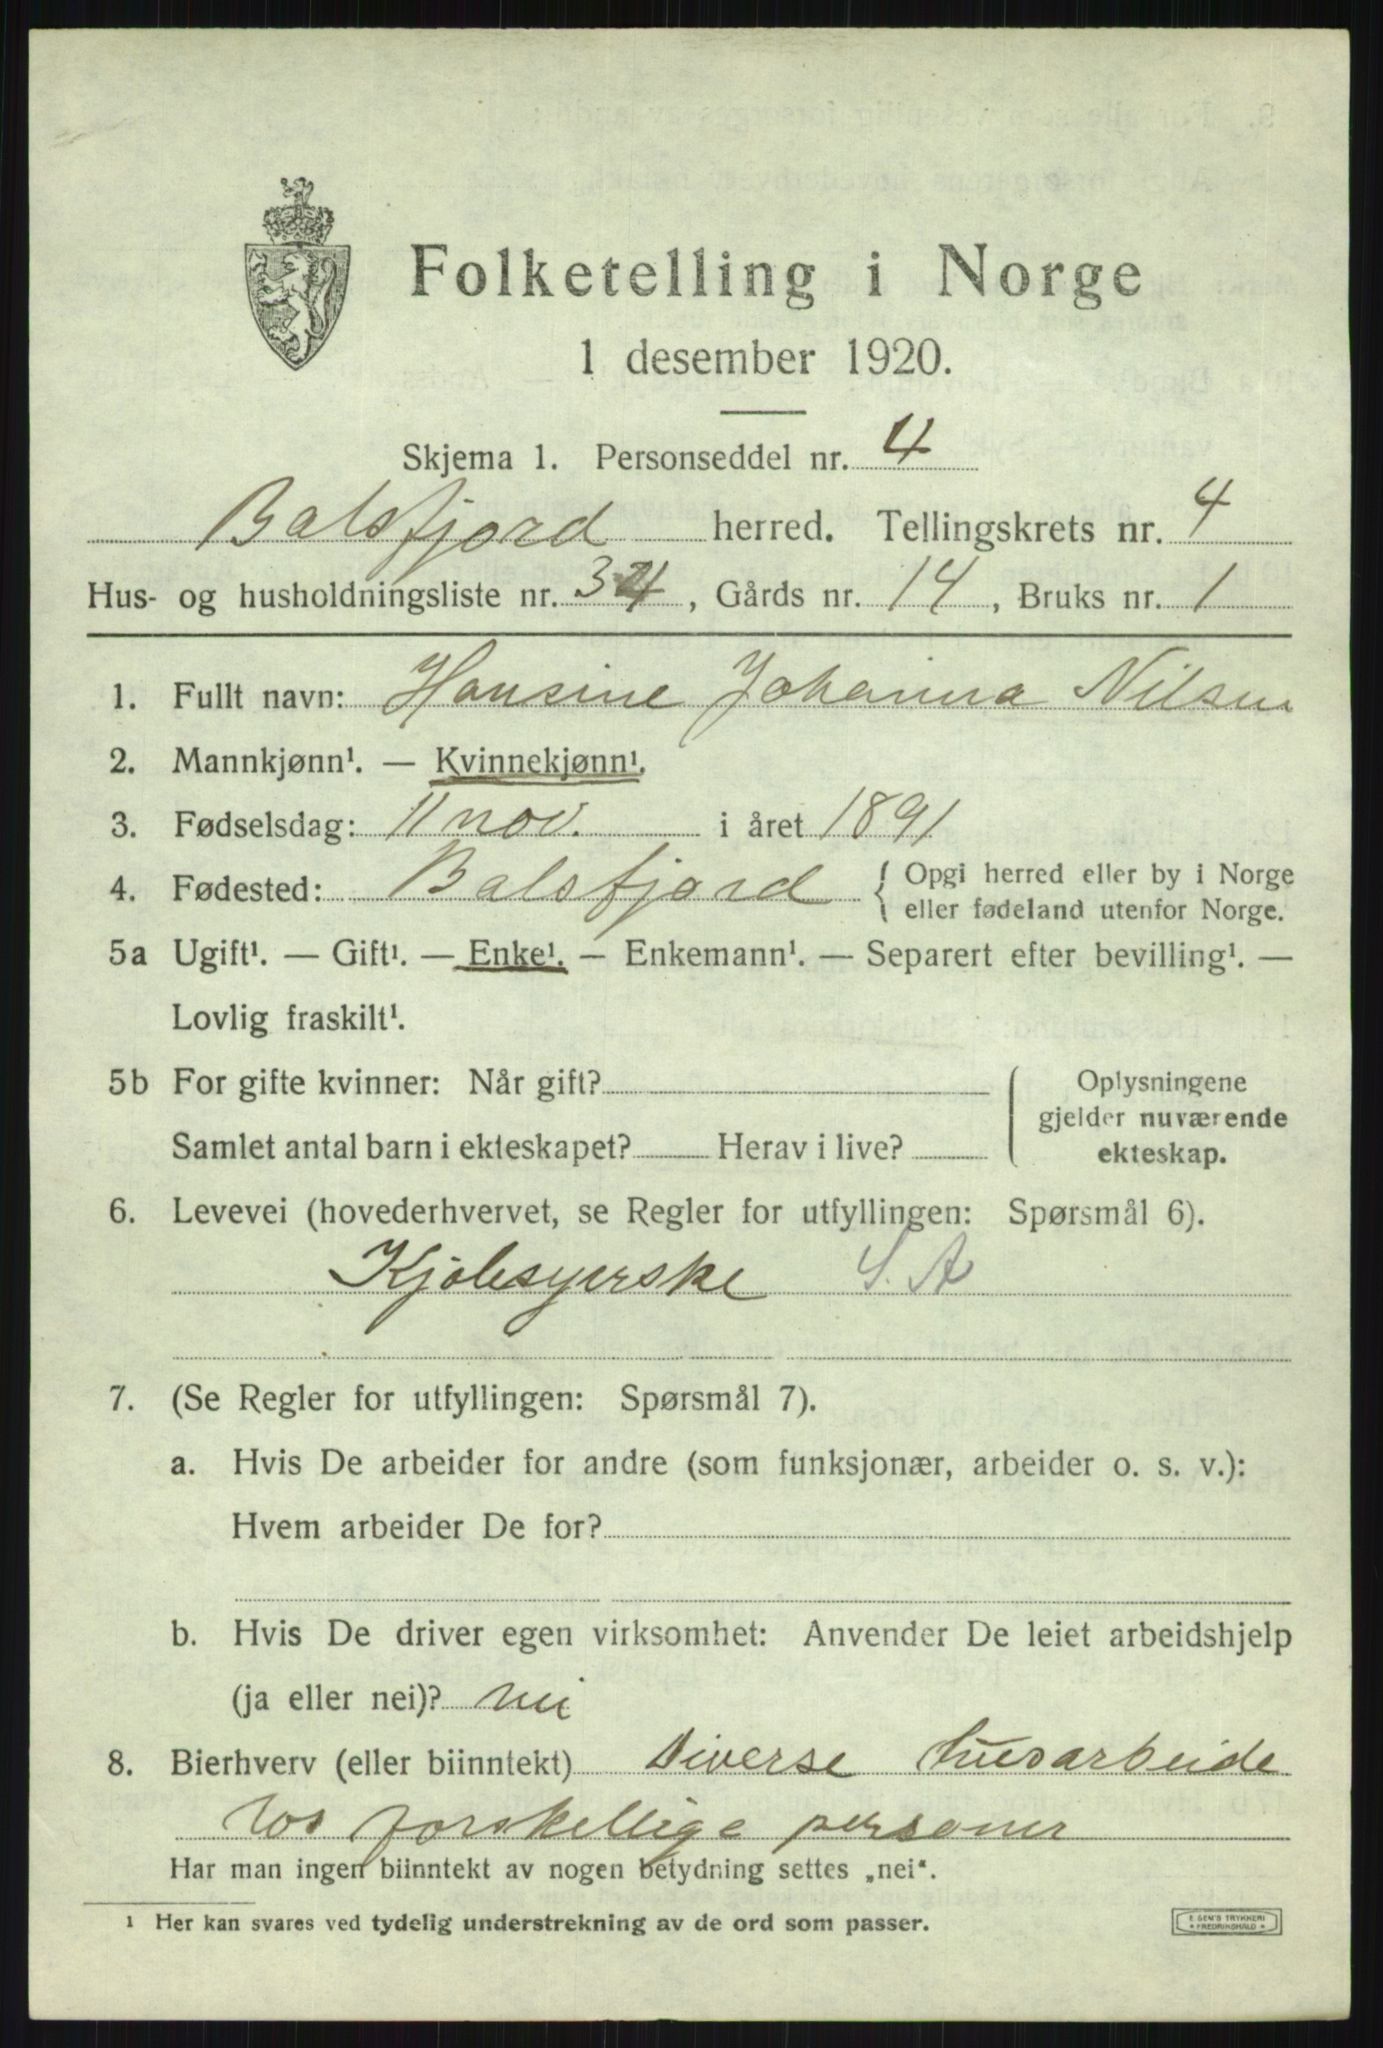 Folketelling i Norge
1 desember 1920.
Skjema 1. Personseddel nr. 4
Balsfjord herred. Tellingskrets nr. 4
Hus- og husholdningsliste nr. 34, Gårds nr. 14, Bruks nr. 1
1. Fullt navn: Hansine Johanna Nilsen
2. Mannkjønn¹. — Kvinnekjønn¹.
3. Fødselsdag: 11 nov. i året 1891
4. Fødested: Balsfjord { Opgi herred eller by i Norge
eller fødeland utenfor Norge.
5a Ugift¹. — Gift¹. — Enke¹. — Enkemann¹. — Separert efter bevilling¹. —
Lovlig fraskilt¹.
5b For gifte kvinner: Når gift?
Samlet antal barn i ekteskapet? Herav i live?
Oplysningene
gjelder nuværende
ekteskap.
6. Levevei (hovederhvervet, se Regler for utfyllingen: Spørsmål 6).
Kjolesyerske S. A
7. (Se Regler for utfyllingen: Spørsmål 7).
a. Hvis De arbeider for andre (som funksjonær, arbeider o. s. v.):
Hvem arbeider De for?
b. Hvis De driver egen virksomhet: Anvender De leiet arbeidshjelp
(ja eller nei)? nei
8. Bierhverv (eller biinntekt) Diverse husarbeide
hos forskellige personer
Har man ingen biinntekt av nogen betydning settes „nei“.
¹ Her kan svares ved tydelig understrekning av de ord som passer.
E SEM'S TRYKKERI
FREDRIKSHALD